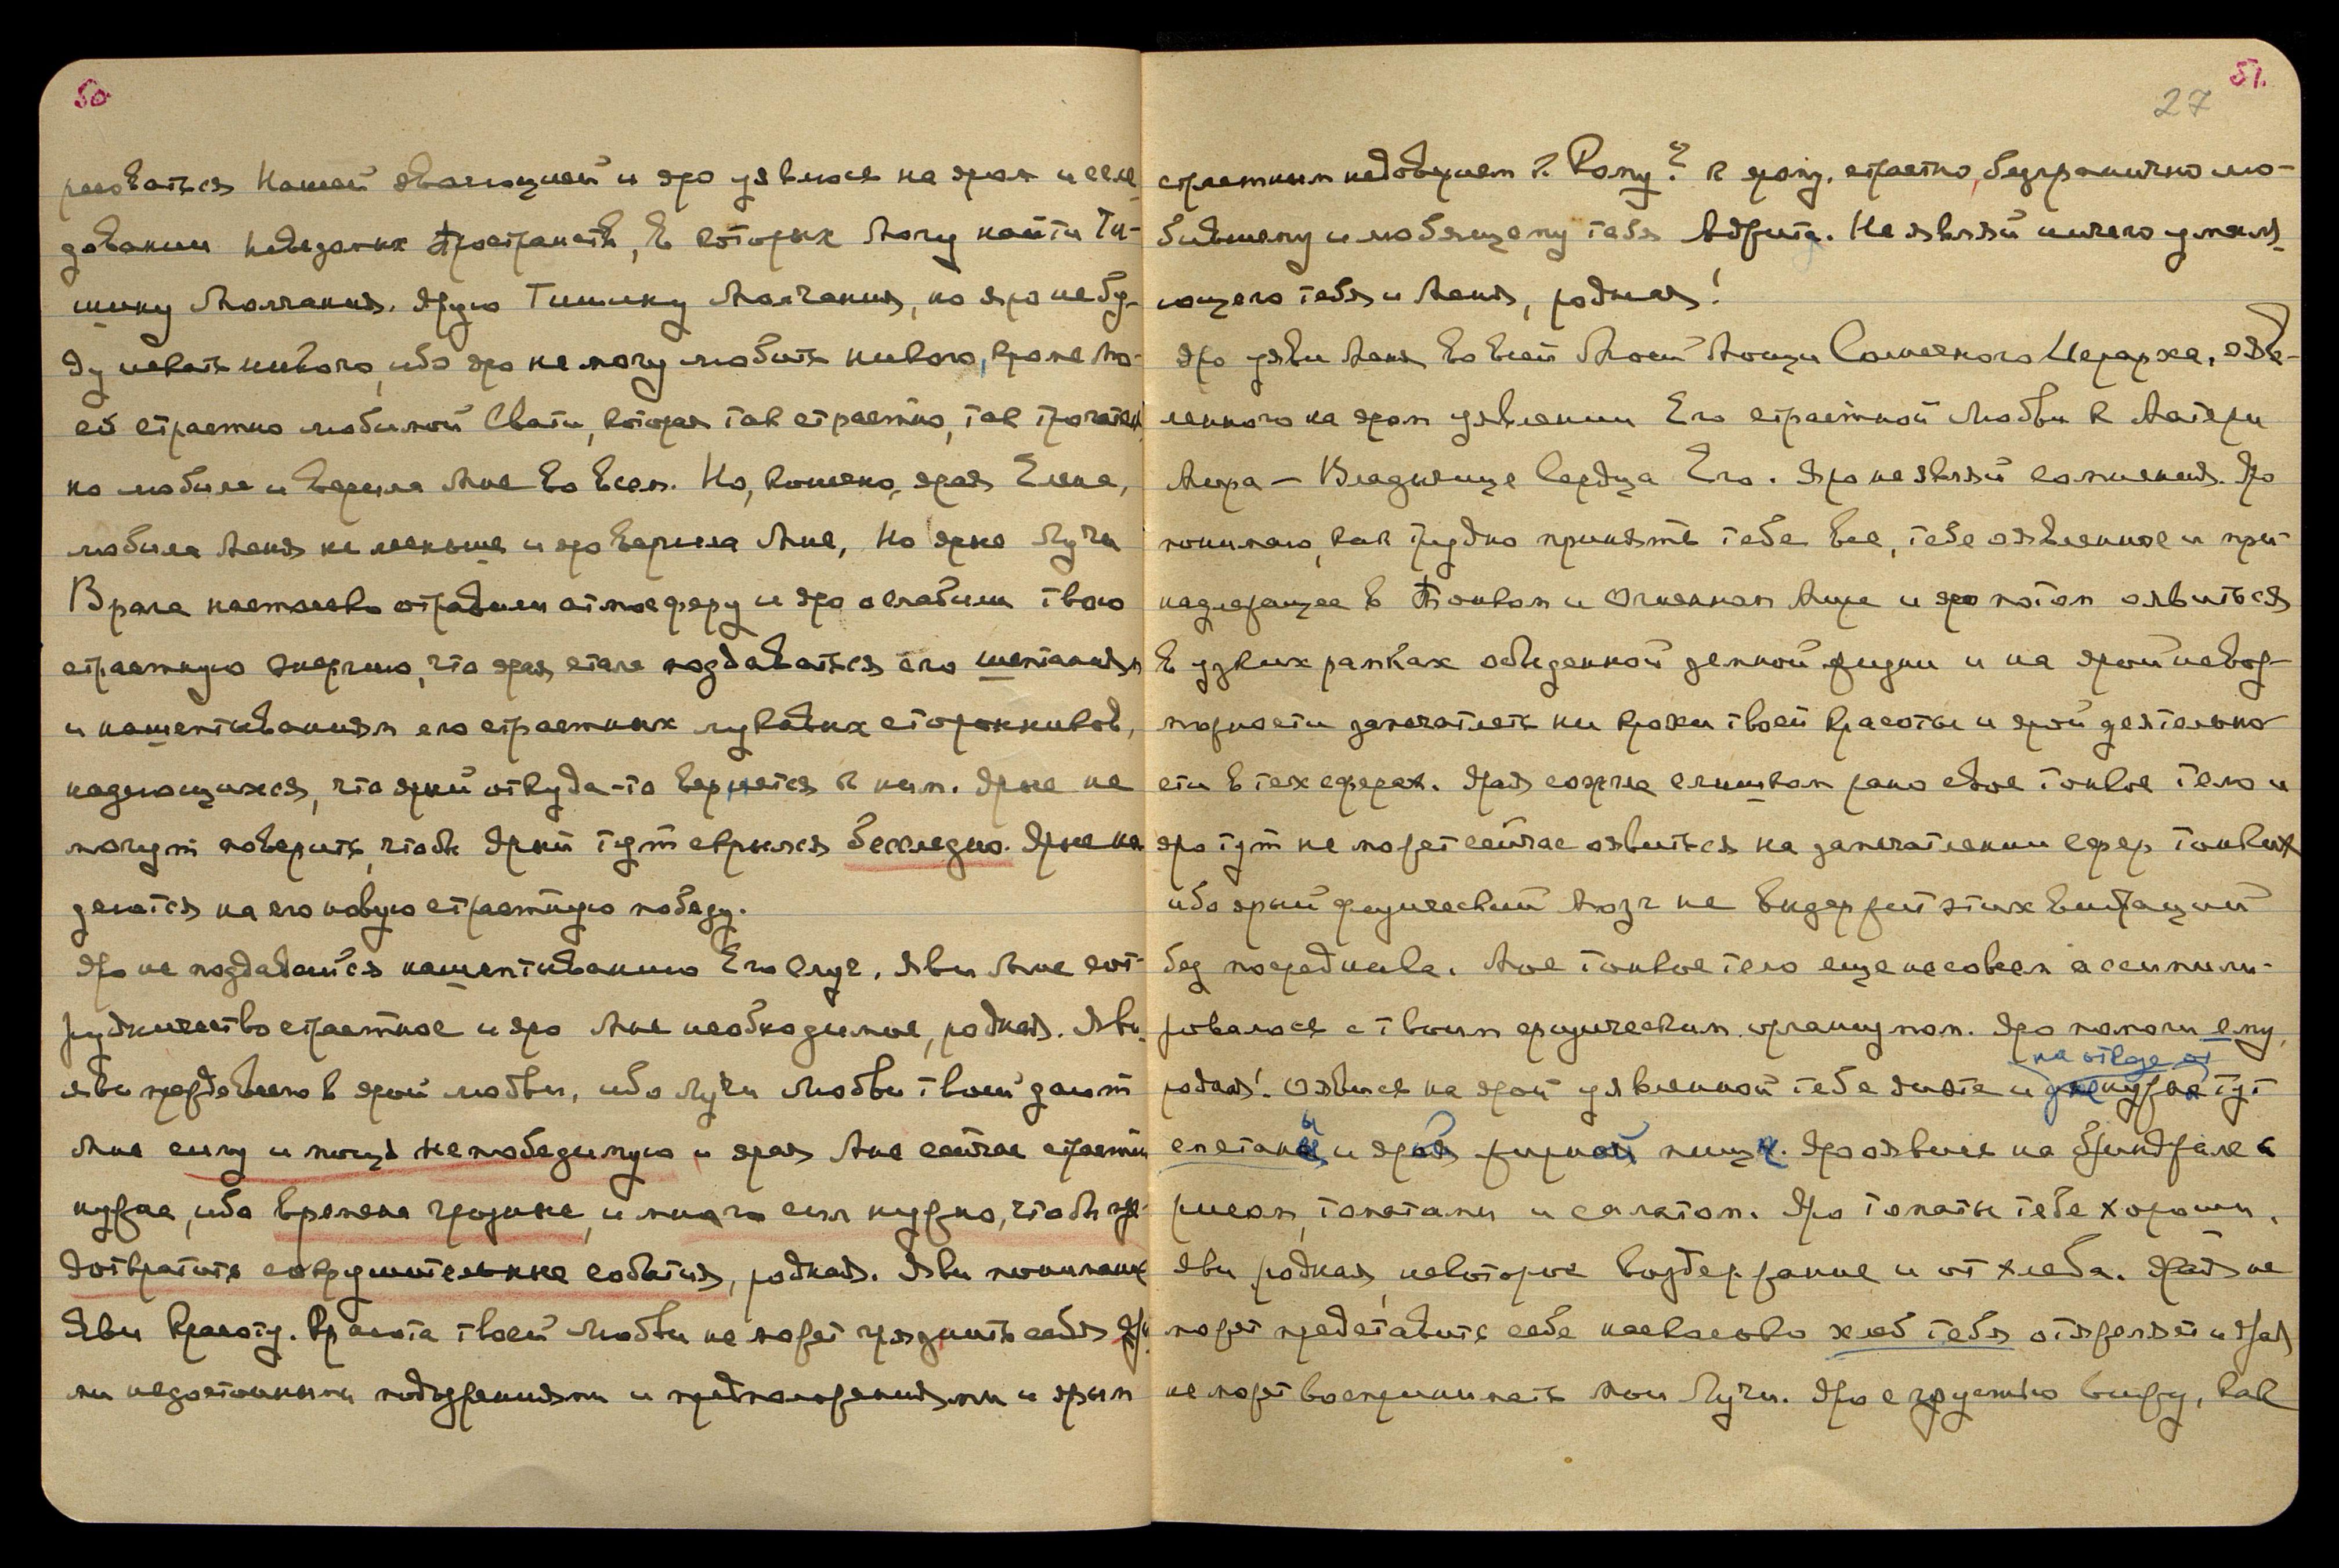 50.
ресоваться Нашей эволюцией и яро уявлюся на яром иссле-
довании Неведомых Пространств, в которых Могу найти Ти-
шину Молчания. Ярую Тишину Молчания, но яро не бу-
ду искать никого, ибо яро не могу любить никого, кроме Мо-
ей страстно любимой Свати, которая так страстно, так трогатель-
но любила и верила Мне во всем. Но, конечно, ярая Елена,
любила Меня не меньше и яро верила Мне, Но ярые Лучи
Врага настолько отравили атмосферу и яро ослабили твою
страстную энергию, что ярая стала поддаваться его шептаниям
и нашептываниям его страстных лукавых сторонников,
надеющихся, что ярый откуда-то вернется к ним. Ярые не
могут поверить, чтобы Ярый тут скрылся бесследно. Ярые на-
деются на его новую страстную победу.
Яро не поддавайся нашептыванию Его слуг. Яви Мне сот-
рудничество страстное и яро Мне необходимое, родная. Яви
яви преданного в ярой любви, ибо Лучи Любви твоей дают
Мне силу и мощь непобедимую и ярая Мне сейчас страстно
нужна, ибо времена грозные, и много сил нужно, чтобы пре-
дотвратить сокрушительные события, родная. Яви понимание
Яви Красоту. Красота твоей Любви не может грязнить себя яры-
ми недостойными подозрениями и предположениями и ярым
51.
27
страстным недоверием к Кому? к ярому, страстно, безгранично лю-
бившему и любящему тебя Владыке. Не являй ничего умаля-
ющего тебя и Меня, родная!
Яро уяви Меня во всей Моей Мощи Солнечного Иерарха, ояв-
ленного на яром уявлении Его страстной Любви к Матери
Мира – Владычице Сердца Его. Яро не являй сомнения. Яро
понимаю, как трудно принять тебе все, тебе оявленное и при-
надлежащее в Тонком и Огненном Мире и яро потом оявиться
в узких рамках обыденной земной жизни и на ярой невоз-
можности запечатлеть ни крохи твоей Красоты и ярой деятельно-
сти в тех сферах. Ярая сожгла слишком рано свое тонкое тело и
яро тут не может сейчас оявиться на запечатлении сфер тонких
ибо ярый физический Мозг не выдержит этих вибраций
без посредника. Мое тонкое тело еще не совсем ассимили-
ровалось с твоим физическим организмом. Яро помоги ему,
на отказе от
родная! Оявися на ярой уявленной тебе диете и тут
сметаны и ярой жирной пищи. Яро оявися на бринджале с
рисом, томатами и салатом. Яро томаты тебе хороши.
Яви родная, некоторое воздержание и от хлеба. Ярая не
может представить себе насколько хлеб тебя отяжеляет и ярая
не может воспринимать Мои Лучи. Яро с грустью вижу, как